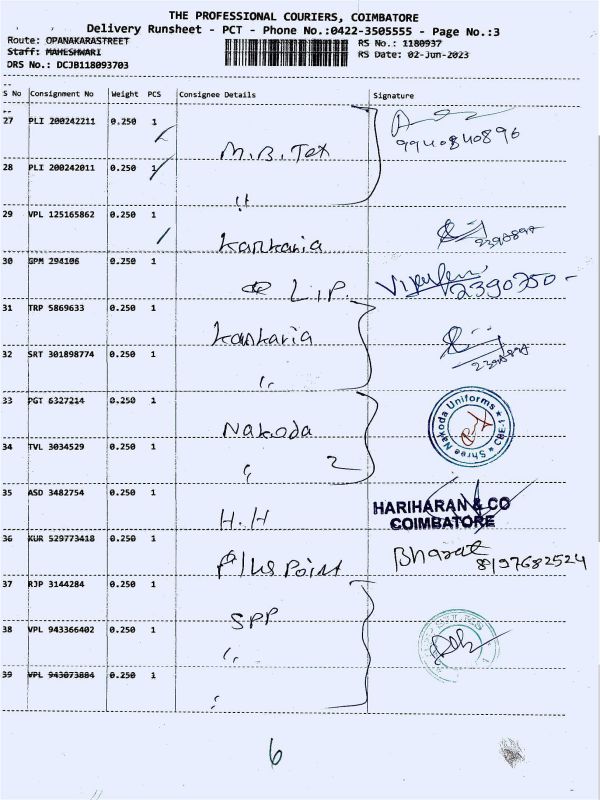 THE PROFESSIONAL COURIERS, COIMBATORE
Delivery Runsheet - PCT - Phone No.:0422-3505555 - Page No.:3
Route: OPANAKARASTREET
RS No.: 1180937
Staff: MAHESHWARI
RS Date: 02-Jun-2023
DRS No.: DCJB118093703
S No Consignment No Weight PCS Consignee Details Signature
27 PLI 200242211 0.250 1
9940840896
M.B. Tex
28 PLI 200242011 0.250 1
"
29 VPL 125165862 0.250 1
Kankaria
30 GPM 294106 0.250 1
L.I.P.
2390750
31 TRP 5869633 0.250 1
Kankaria
32 SRT 301898774 0.250 1
"
33 PGT 6327214 0.250 1
Nakoda
Shree Nakoda Uniforms * CBE-1 *
34 TVL 3034529 0.250 1
" 2
35 ASD 3482754 0.250 1
H.H
HARIHARAN & CO
COIMBATORE
36 KUR 529773418 0.250 1
Plus Point
Bharat
8197682524
37 RJP 3144284 0.250 1
SPP
38 VPL 943366402 0.250 1
"
39 VPL 943073884 0.250 1
"
6